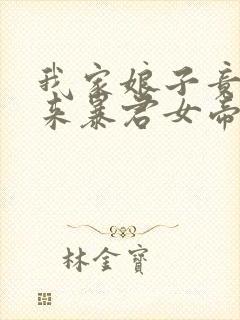 我家娘子竟
来暴君女帝
林金寶